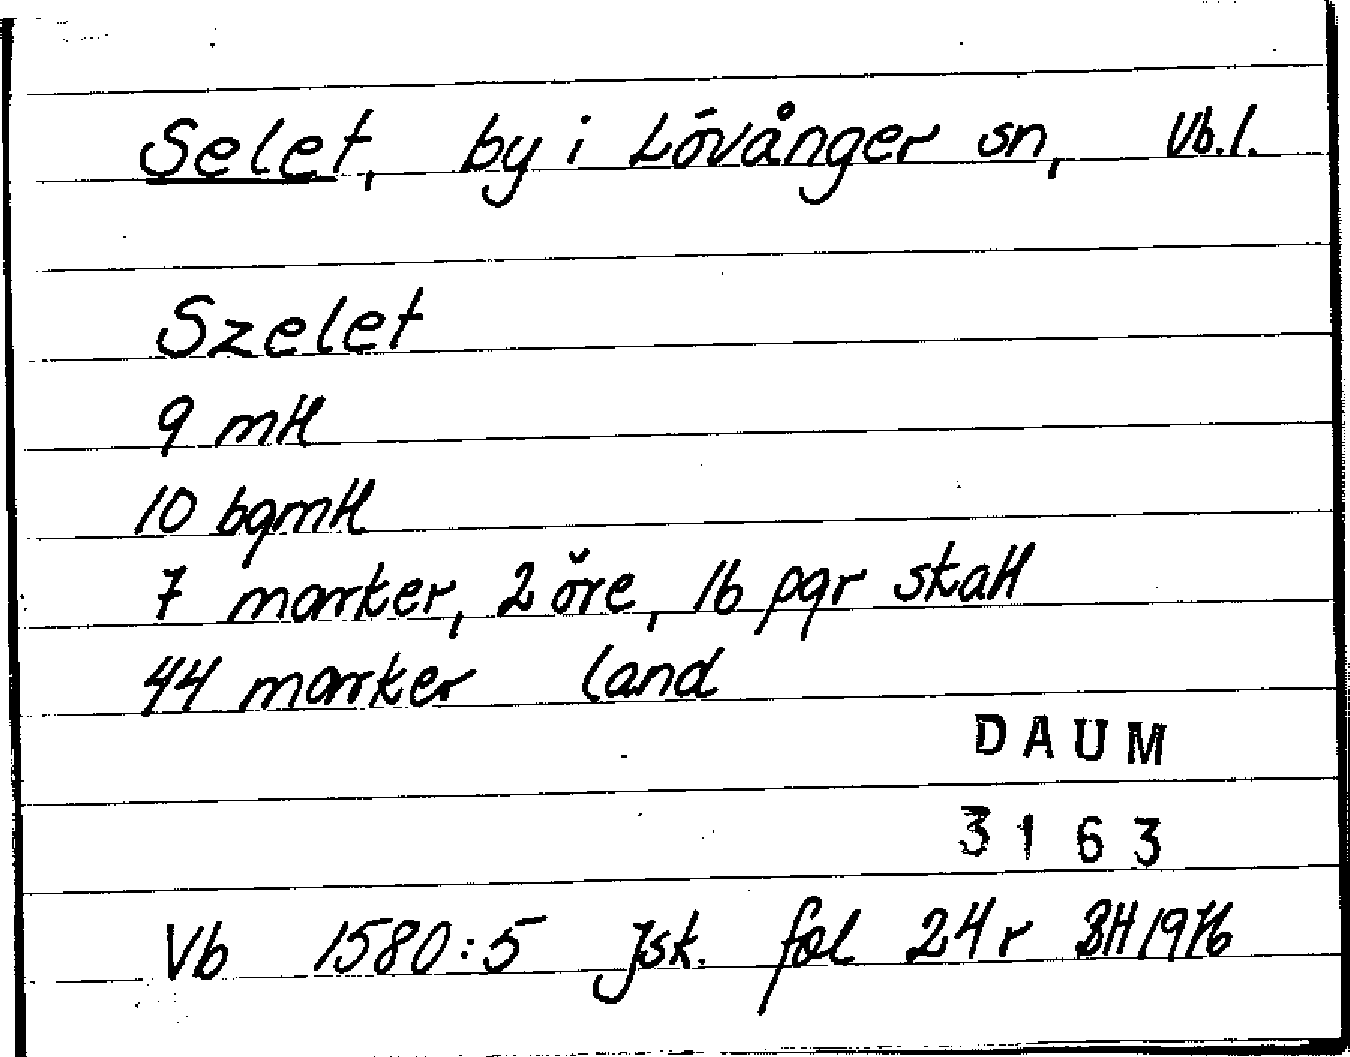 Selet, by i Lövånger sn, Vb.l.
Szelet
9 mtl
10 bgmtl
7 marker, 2 öre, 16 pgr skatt
44 marker land
DAUM
3163
Vb 1580:5 Jsk. fol 24r BH 1976